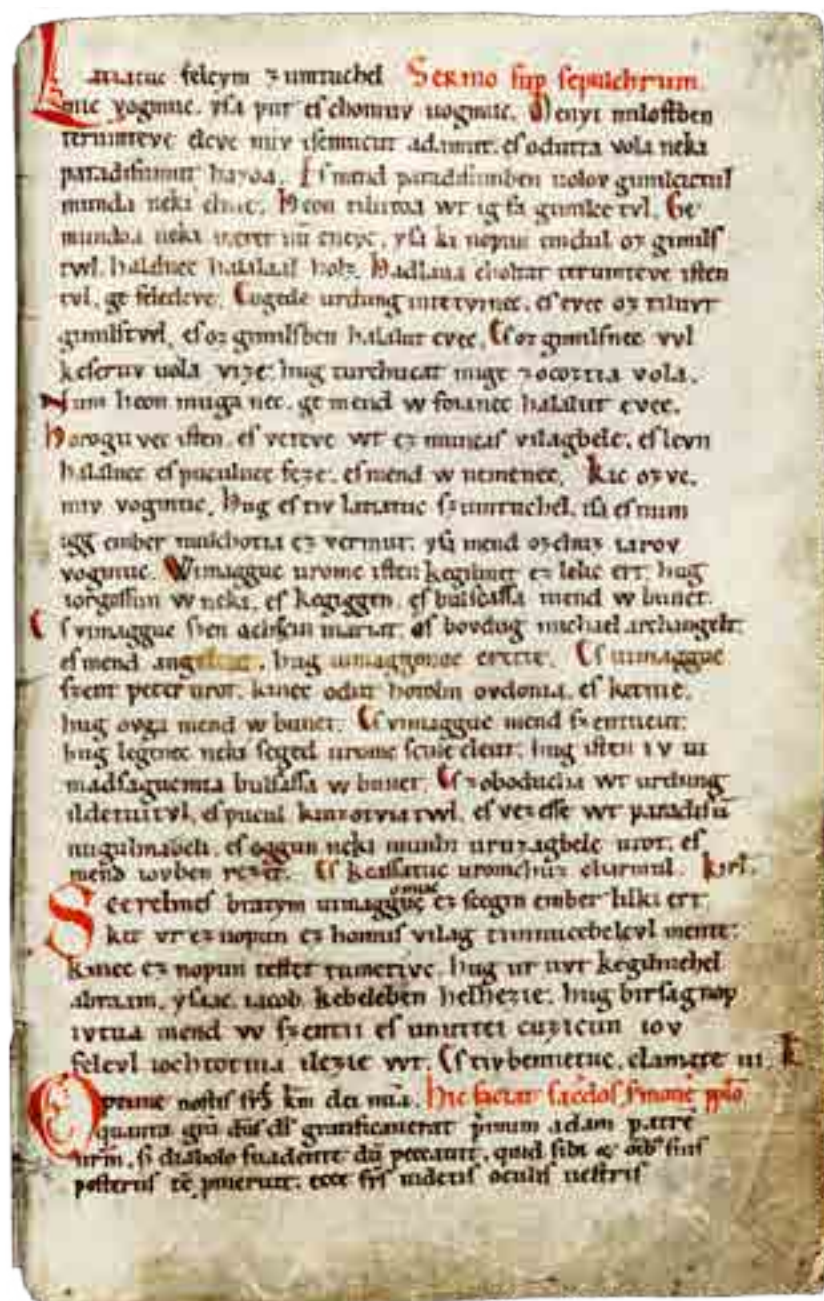 Latiatuc feleym zumtuchel Sermo sup sepulchrum.
mic vogmuc. yſa pur eſ chomuv uogmuc. Menyi miloſtben
terumteve eleve miv iſemucut adamut. eſ odutta vola neki
paradiſumut hazoa. Eſ mend paradiſumben uolov gimilcictul
munda neki elnie. Heon tilutoa wt ig fa gimilce tvl. Ge
mundoa neki meret nū eneyc. yſa ki nopun emdul oz gimilſ
twl. halalnec halalaal holz. Hadlaua choltat terumteve iſten
tvl. ge feledeve. Engede urdung intetvinec. eſ evec oz tiluvt
gimilſtwl. eſ oz gimilſben halalut evec. Eſ oz gimilſnec vvl
keſeruv uola vize. hug turchucat mige zocoztia vola.
Num heon muga nec. ge mend w foianec halalut evec.
Horogu vec iſten. eſ veteve wt ez muncaſ vilagbele. eſ levn
halalnec eſ puculnec feze. eſ mend w nemenec. Kic ozvc.
miv vogmuc. Hug eſ tiv latiatuc ſzumtuchel. iſa eſ num
igg ember mulchotia ez vermut. yſa mend ozchuz iarov
vogmuc. Wimagguc uromc iſten kegilmet ez lelic ert. hug
iorgoſſun w neki. eſ kegiggen. eſ bulſcaſſa mend w bunet.
Eſ vimagguc ſzen achſcin mariat. eſ bovdug michael archangelt.
eſ mend angelcut. hug uimaggonoc erette. Eſ uimagguc
ſzent peter urot. kinec odut hotolm ovdonia. eſ ketnie.
hug ovga mend w bunet. Eſ vimagguc mend ſzentucut.
hug legenec neki ſeged uromc ſcine eleut. hug iſten iv ui
madſagucmia bulſaſſa w bunet. Eſ zoboducha wt urdung
ildetuitvl. eſ pucul kinzotviatwl. eſ vezeſſe wt paradiſū
nugulmabeli. eſ oggun neki munhi uruzagbele utot. eſ
mend iovben rezet. Eſ keaſſatuc uromchuz charmul. Kirł.
Scerelmeſ bratym uimaggomuc ez ſcegin ember lilki ert.
kit vr ez nopun ez homuſ vilag timnucebelevl mente.
kinec ez nopun teſtet tumetivc. hug ur uvt kegilmehel
abraam. yſaac. iacob. kebeleben helhezie. hug birſagnop
ivtua mend w ſzentii eſ unuttei cuzicun iov
felevl iochtotnia ilezie wt. Eſ tivbennetuc. clamate iii. K